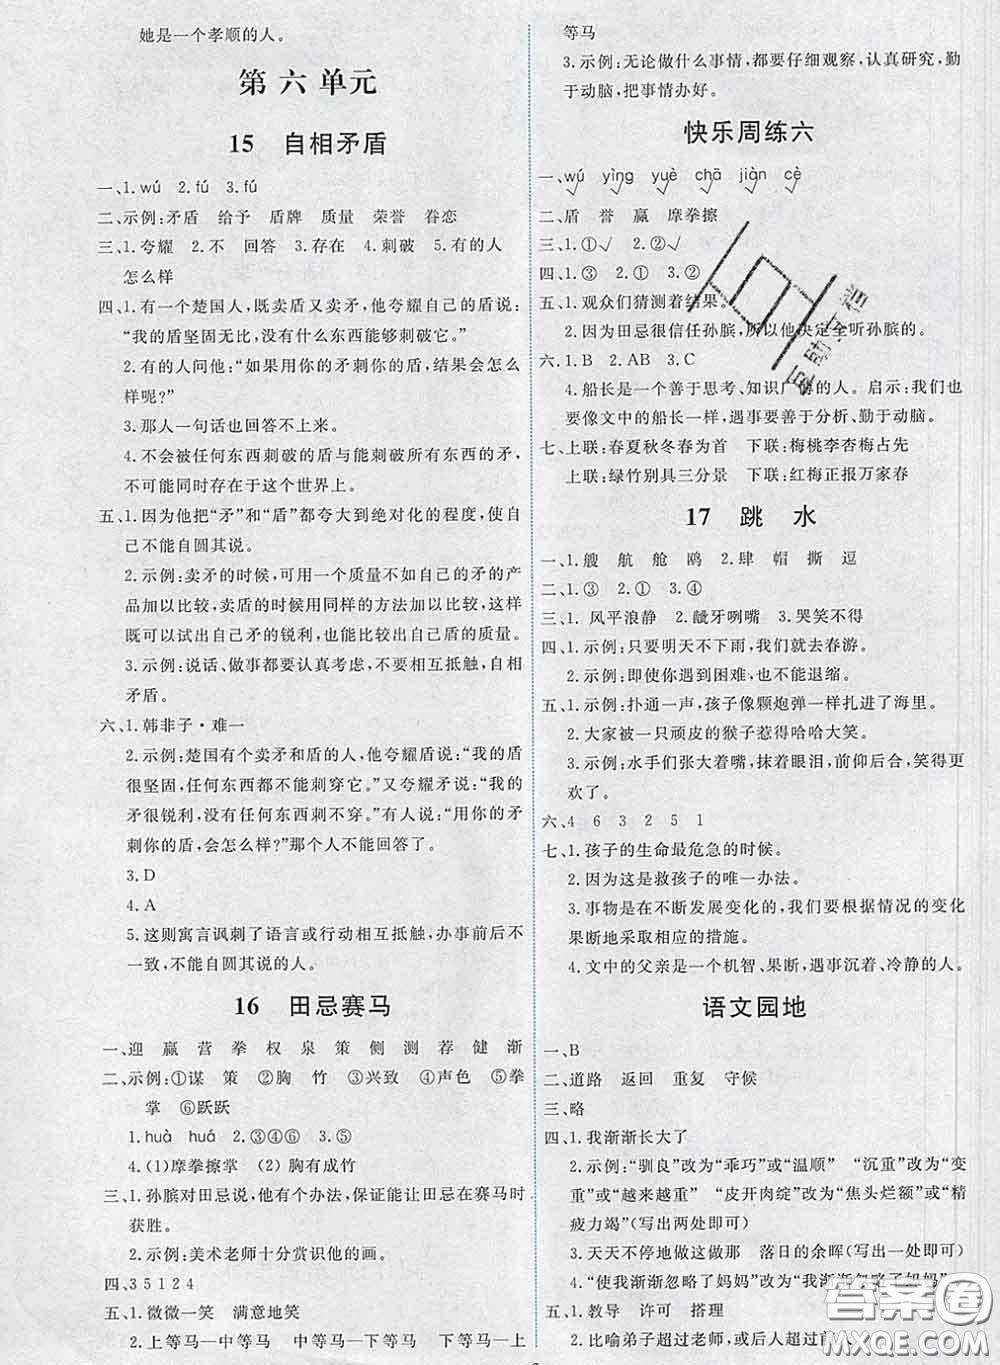 她是一个孝顺的人。
第六单元
15 自相矛盾
一、1.wú 2.fú 3.fú
二、示例:矛盾 给予 盾牌 质量 荣誉 眷恋
三、1.夸耀 2.不 回答 3.存在 4.刺破 5.有的人
怎么样
四、1.有一个楚国人,既卖盾又卖矛,他夸耀自己的盾说:
“我的盾坚固无比,没有什么东西能够刺破它。”
2.有的人问他:“如果用你的矛刺你的盾,会怎么
样呢?”
3.那人一句话也回答不上来。
4.不会被任何东西刺破的盾与能刺破所有东西的矛,
不可能同时存在于这个世界上。
五、1.因为他把“矛”和“盾”都夸大到绝对化的程度,使自
己不能自圆其说。
2.示例:卖矛的时候,可用一个质量不如自己的矛的产
品加以比较,卖盾的时候用同样的方法加以比较,这样
既可以试出自己矛的锐利,也能比较出自己盾的质量。
3.示例:说话、做事都要认真考虑,不要相互抵触,自相
矛盾。
六、1.韩非子·难一
2.示例:楚国有个卖矛和盾的人,他夸耀盾说:“我的盾
很坚固,任何东西都不能刺穿它。”又夸耀矛说:“我的
矛很锐利,没有任何东西刺不穿。”有人说:“用你的矛
刺你的盾,会怎么样?”那个人不能回答了。
3.D
4.A
5.这则寓言讽刺了语言或行动相互抵触,办事前后不
一致,不能自圆其说的人。
16 田忌赛马
一、迎 赢 营 拳 权 泉 策 侧 测 荐 健 渐
二、示例:①谋 策 ②胸 竹 ③兴致 ④声色 ⑤拳
掌 ⑥跃跃
1.huà huá 2.③④⑥ 3.⑤
4.(1)摩拳擦掌 (2)胸有成竹
三、1.孙膑对田忌说,他有个办法,保证能让田忌在赛马时
获胜。
2.示例:美术老师十分赏识他的画。
四、3 5 1 2 4
五、1.微微一笑 满意地笑
2.上等马—中等马 中等马—下等马 下等马—上
等马
3.示例:无论做什么事情,都要仔细观察,认真研究,勤
于动脑,把事情办好。
快乐周练六
一、wú yìng yuè chā jiàn cè
二、盾 誉 赢 摩拳擦
三、1.①√ 2.②√
四、1.③ 2.① 3.②
五、1.观众们猜测着结果。
2.因为田忌很信任孙膑,所以他决定全听孙膑的。
六、1.B 2.AB 3.C
4.船长是一个善于思考、知识广博的人。启示:我们也
要像文中的船长一样,遇事要善于分析、勤于动脑。
七、上联:春夏秋冬春为首 下联:梅桃李杏梅占先
上联:绿竹别具三分景 下联:红梅正报万家春
17 跳水
一、1.艘 航 舱 鸥 2.肆 帽 撕 逗
二、1.③ 2.① 3.④
三、1. 风平浪静 2.龇牙咧嘴 3.哭笑不得
四、1.示例:只要明天不下雨,我们就去春游。
2.示例:即使你遇到困难,也不能退缩。
五、1.示例:扑通一声,孩子像颗炮弹一样扎进了海里。
2.大家被一只顽皮的猴子惹得哈哈大笑。
3.示例:水手们张大着嘴,抹着眼泪,前仰后合,笑得更
欢了。
六、4 6 3 2 5 1
七、1.孩子的生命最危急的时候。
2.因为这是救孩子的唯一办法。
3.事物是在不断发展变化的,要根据情况的变化
果断地采取相应的措施。
4.文中的父亲是一个机智、果断,遇事沉着、冷静的人。
语文园地
一、B
二、道路 返回 重复 守候
三、略
四、1.我渐渐长大了
2.示例:“驯良”改为“乖巧”或“温顺” “沉重”改为“变
重”或“越来越重” “皮开肉绽”改为“焦头烂额”或“精
疲力竭”(写出两处即可)
3.天天不停地做这做那 落日的余晖(写出一处即可)
4.“使我渐渐忽略了妈妈”改为“我渐渐忽略了妈妈”
五、1.教导 许可 搭理
2.比喻弟子超过老师,或后人超过前
答案圈
MXQE.COM